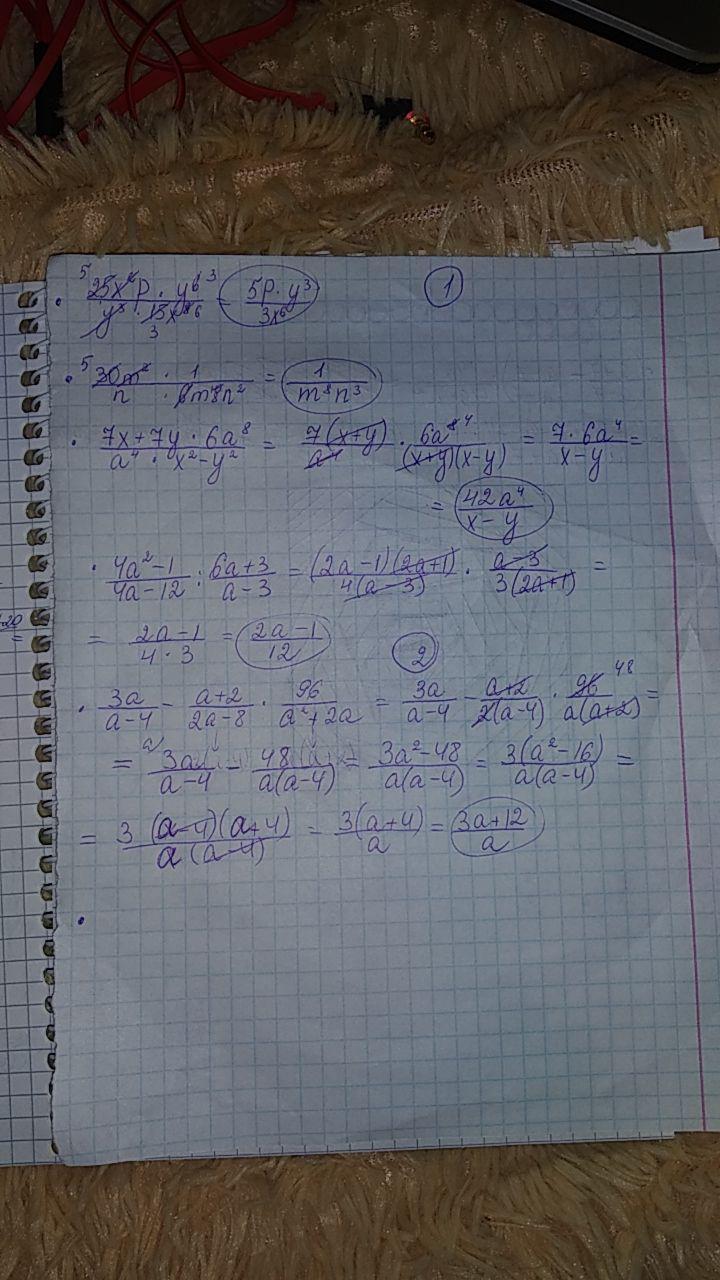 5 25x²p · y⁶ 3 / y³ · 15x⁸ 6 3 = 5p · y³ / 3x⁶ 1
5 30m² · 1 / n · 6m⁸n² = 1 / m⁸n³
7x+7y · 6a⁸ / a⁴ · x²-y² = 7(x+y) / a⁴ · 6a⁸ 4 / (x+y)(x-y) = 7 · 6a⁴ / x-y =
= 42a⁴ / x-y
4a²-1 / 4a-12 : 6a+3 / a-3 = (2a-1)(2a+1) / 4(a-3) · a-3 / 3(2a+1) =
= 2a-1 / 4 · 3 = 2a-1 / 12
2
3a / a-4 - a+2 / 2a-8 · 96 / a²+2a = 3a / a-4 - a+2 / 2(a-4) · 96 48 / a(a+2) =
= a/ 3a / a-4 - 48 / a(a-4) = 3a²-48 / a(a-4) = 3(a²-16) / a(a-4) =
= 3 (a-4)(a+4) / a(a-4) = 3(a+4) / a = 3a+12 / a